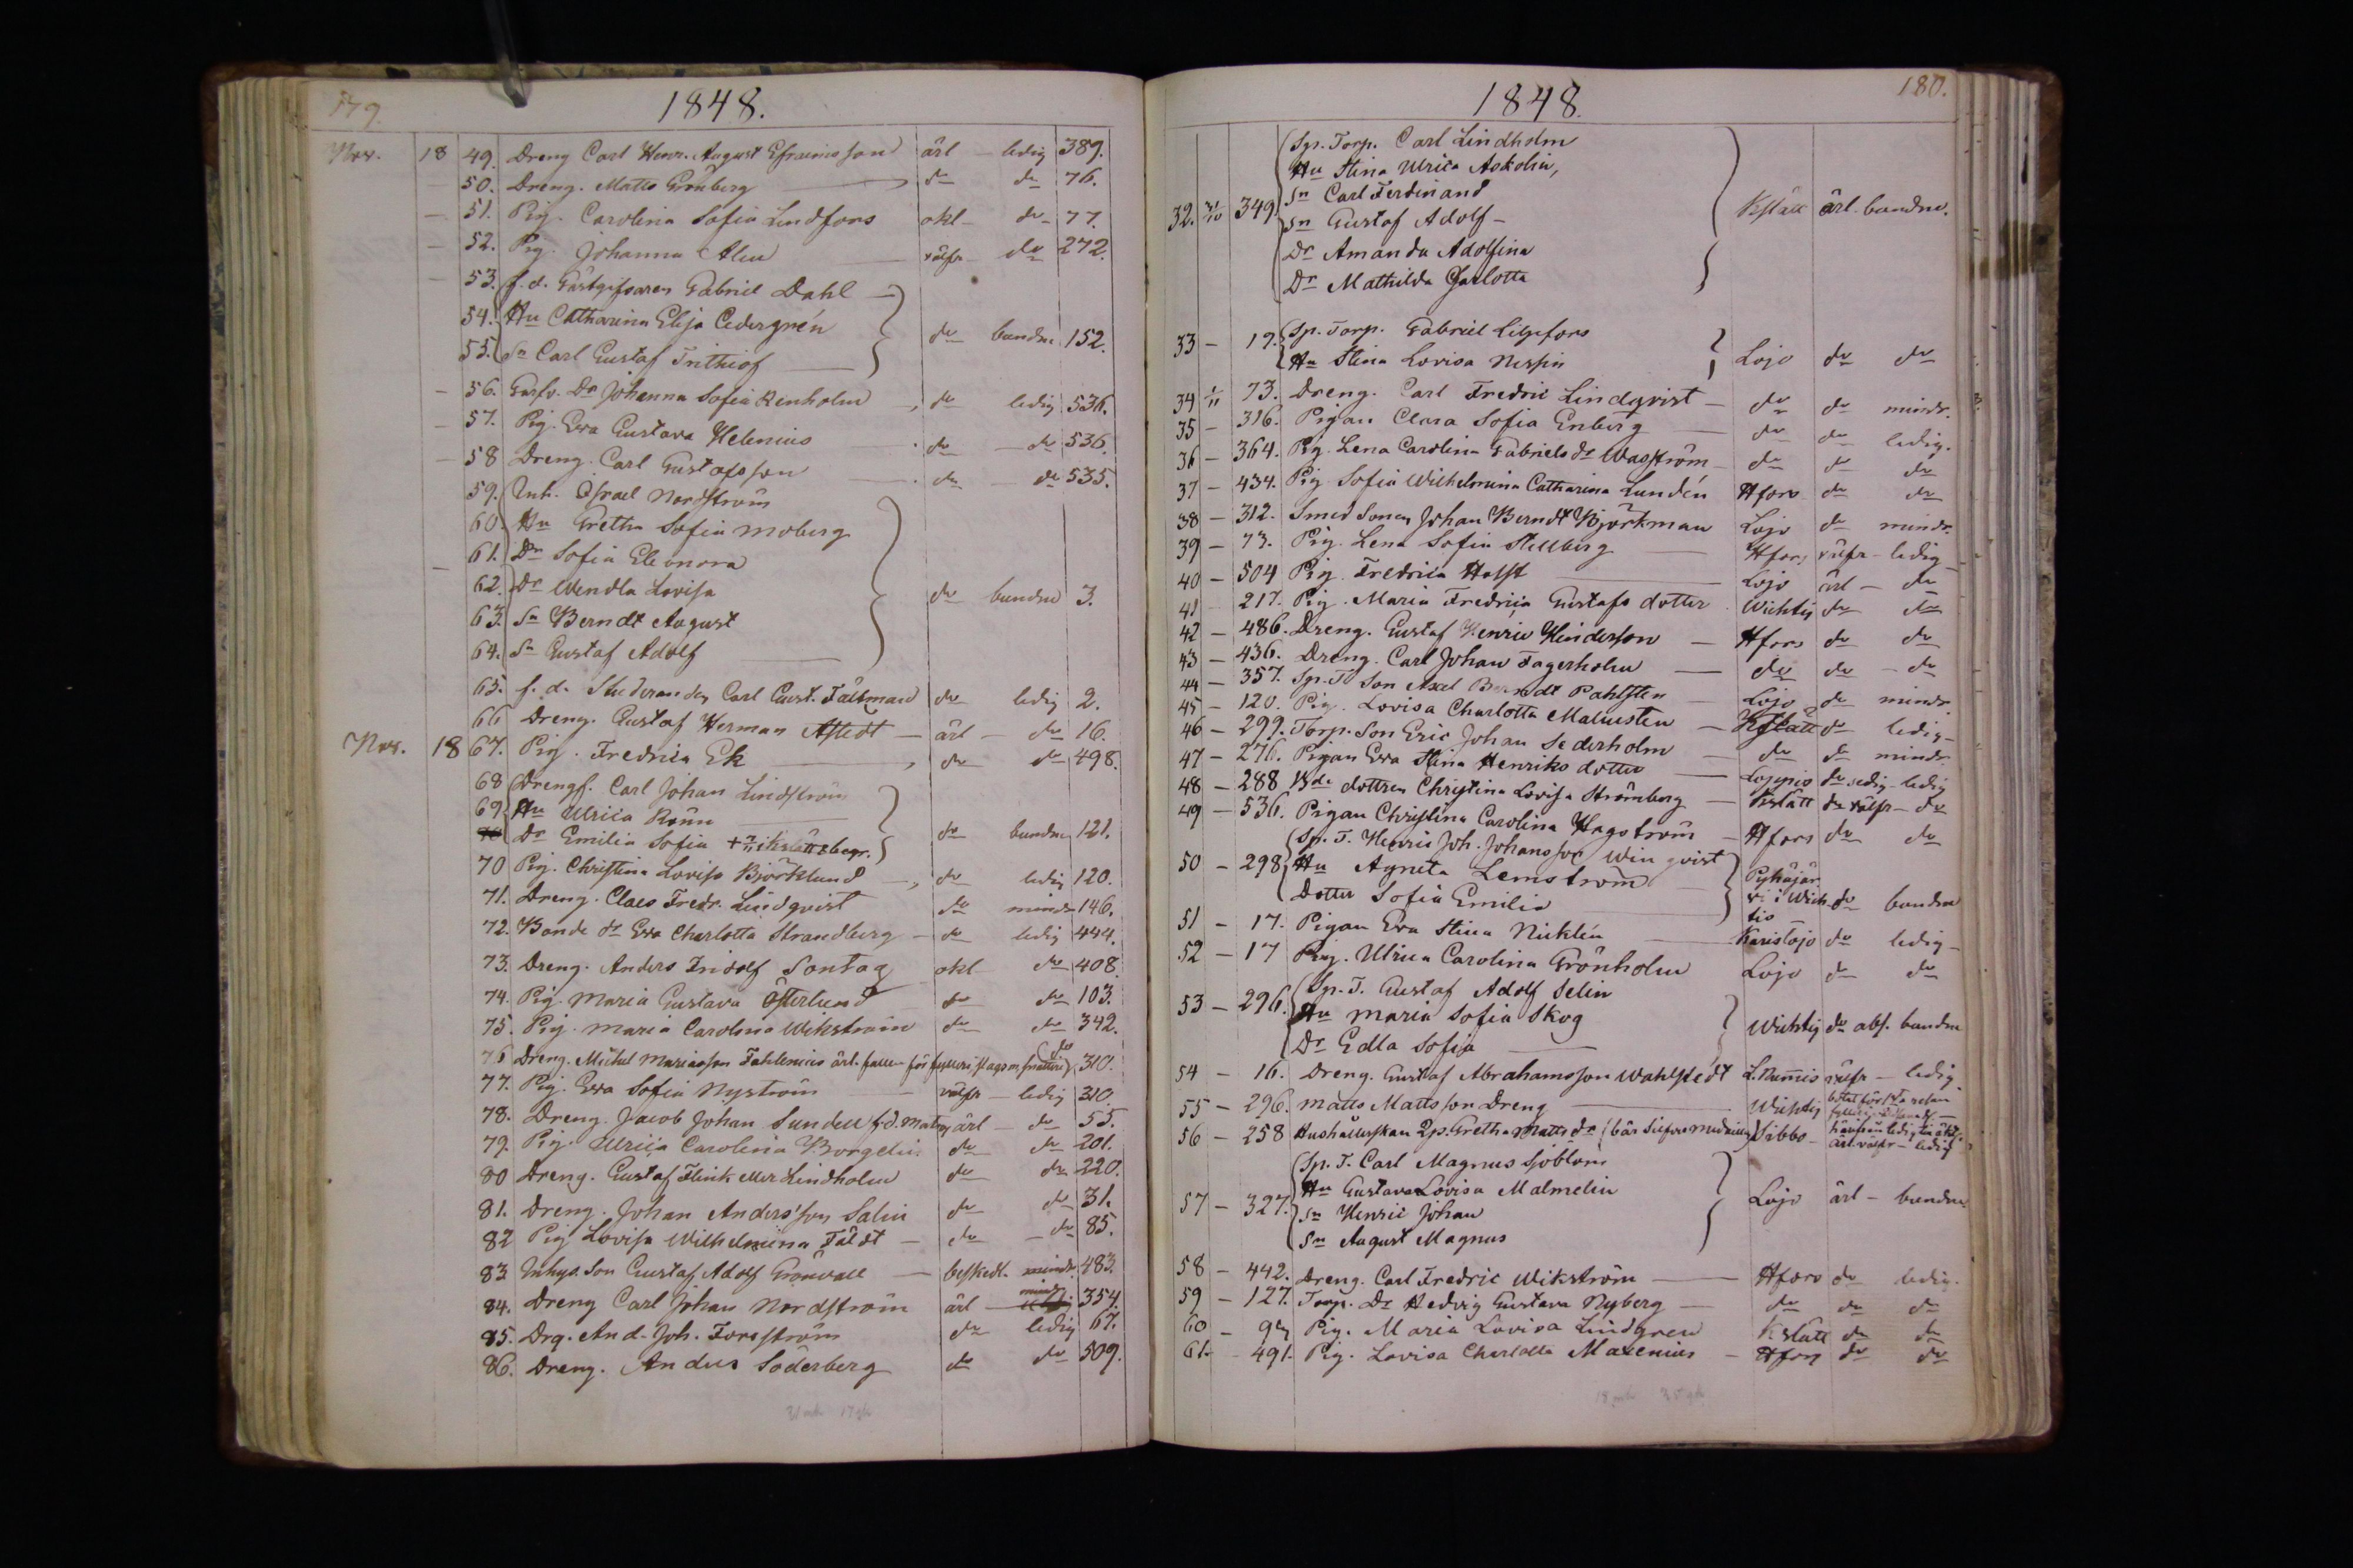 179.
1848.
Nov. 18 49. Dreng Carl Henr. August Efraimsson ärl - ledig 389.
50. Dreng. Matts Grönberg do do 76.
51. Pig. Carolina Sofia Lindfors okl - do 77.
52. Pig. Johanna Alen välfr do 272.
53. f.d. Gästgifvaren Gabriel Dahl
54. Hu Catharina Elisa Cedergrén do bunden 152.
55. Sn Carl Gustaf Frithiof
56. Garfv. Dr Johanna Sofia Renholm do ledig 536.
57. Pig. Eva Gustava Helenius do do 536.
58 Dreng. Carl Gustafsson do do 535.
59. Inh. Israel Nordström
60. Hu Gretha Sofia Moberg
61. Dr Sofia Eleonora
62. Dr Wendla Lovisa do bundne 3.
63. Sn Berndt August
64. Sn Gustaf Adolf
65. f.d. Studeranden Carl Gust. Fältman do ledig 2.
66 Dreng. Gustaf Herman Afstedt ärl - do 16.
Nov. 18 67. Pig. Fredrica Ek do do 498.
68 Drengf. Carl Johan Lindström
69 Hu Ulrica Rönn do bundne 121.
Dr Emilia Sofia + i Kslätt begr.
70 Pig. Christina Lovisa Björklund do ledig 120.
71. Dreng. Claes Fredr. Lindqvist do mindr 146.
72. Bonde dr Eva Charlotta Strandberg - do ledig 444.
73. Dreng. Anders Indolf Sontag okl do 408.
74. Pig. Maria Gustava Österlund do do 103.
75. Pig. Maria Carolina Wikström do do 342.
76 Dreng. Michel Mariasson Fahlenius ärl. för fylleri, slagsm. do 310.
77. Pig. Eva Sofia Nyström välfr - ledig 310.
78. Dreng. Jacob Johan Sundell f.d. Matros ärl - do 55.
79. Pig. Ulrica Carolina Borgelin do do 201.
80 Dreng. Gustaf Flink eller Lindholm do do 220.
81. Dreng. Johan Andersson Salin do do 31.
82 Pig Lovisa Wilhelmina Fäldt - do - do 85.
83 Inhys. Son Gustaf Adolf Grönvall beskedl. mindr. 483.
84. Dreng Carl Johan Nordström ärl - mindr 354.
85. Drg. And. Joh. Forsström do ledig 67.
86. Dreng. Anders Söderberg do do 509.
1848
180.
Sp. Torp. Carl Lindholm
Hu Stina Ulrica Askolin,
Sn Carl Ferdinand
32. 31/10 349. Sn Gustaf Adolf - Kslätt ärl. bundne.
Dr Amanda Adolfina
Dr Mathilda Charlotta
33 - 19. Sp. Torp. Gabriel Liljefors
Hu Stina Lovisa Nespin Lojo do do
34 1/11 73. Dreng. Carl Fredric Lindqvist - do do mindr.
35 - 316. Pigan Clara Sofia Enberg do do ledig.
36 - 364. Pig. Lena Carolina Gabriels dr Wasström - do do do
37 - 434. Pig Sofia Wilhelmina Catharina Lundén Hfors do do
38 - 312. Smed Sonen Johan Berndt Björkman Lojo do mindr.
39 - 73. Pig. Lena Sofia Stellberg Hfors välfr - ledig
40 - 504 Pig. Fredrica Holst Lojo ärl - do
41 217. Pig. Maria Fredrica Gustafs dotter Wichtis do do
42 - 486. Dreng. Gustaf Henric Hindersson - Hfors do do
43 - 436. Dreng. Carl Johan Fagerholm do do - do
44 - 357. Sp. T. Son Axel Berndt Pahlsten Lojo do mindr.
45 - 120. Pig. Lovisa Charlotta Malmsten - Kslätt do ledig -
46 - 299. Torp. Son Eric Johan Sederholm do do mindr.
47 - 276. Pigan Eva Stina Henriks dotter Lojo do ledig
48 - 288 Bde dottren Christina Lovisa Strömberg - Kslätt do välfr - do
49 - 536. Pigan Christina Carolina Hagström - Hfors do do
Sp. T. Henric Joh. Johansson Winqvist
50 - 298 Hu Agneta Lemström Pyhäjär
Dotter Sofia Emilia vi i Wich- do bundne
tis
51 - 17. Pigan Eva Stina Nicklén Karislojo do ledig -
52 - 17 Pig. Ulrica Carolina Grönholm Lojo do do
Sp. T. Gustaf Adolf Selin
53 - 296. Hu Maria Sofia Skog Wichtis do abs. bundne
Dr Edla Sofia
54 - 16. Dreng. Gustaf Abrahamsson Wahlstedt L. Nummis välfr - ledig
55 - 296. Matts Mattsson Dreng Wichtis
56 - 258 Hushållerskan Ips. Gretha Matts dr (bär Silfvermedaille) Sibbo - ärl. välfr - ledig
Sp. T. Carl Magnus Sjöblom
Hu Gustava Lovisa Malmelin
57 - 327. Sn Henric Johan Lojo ärl - bundne
Sn August Magnus
58 - 442. Dreng. Carl Fredric Wikström Hfors do ledig.
59 - 127. Torp. Dr Hedvig Gustava Nyberg - do do do
60 - 94 Pig. Maria Lovisa Lindgren Kslätt do do
61. - 491. Pig. Lovisa Charlotta Maxenius - Hfors do do